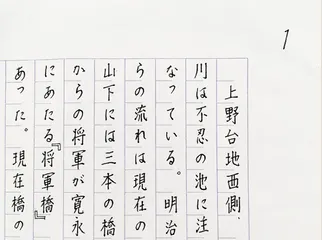 1
上野台地西側、
川は不忍の池に注
なっている。明治
らの流れは現在の
山下には三本の橋
からの将軍が寛永
にあたる『将軍橋』
あった。現在橋の